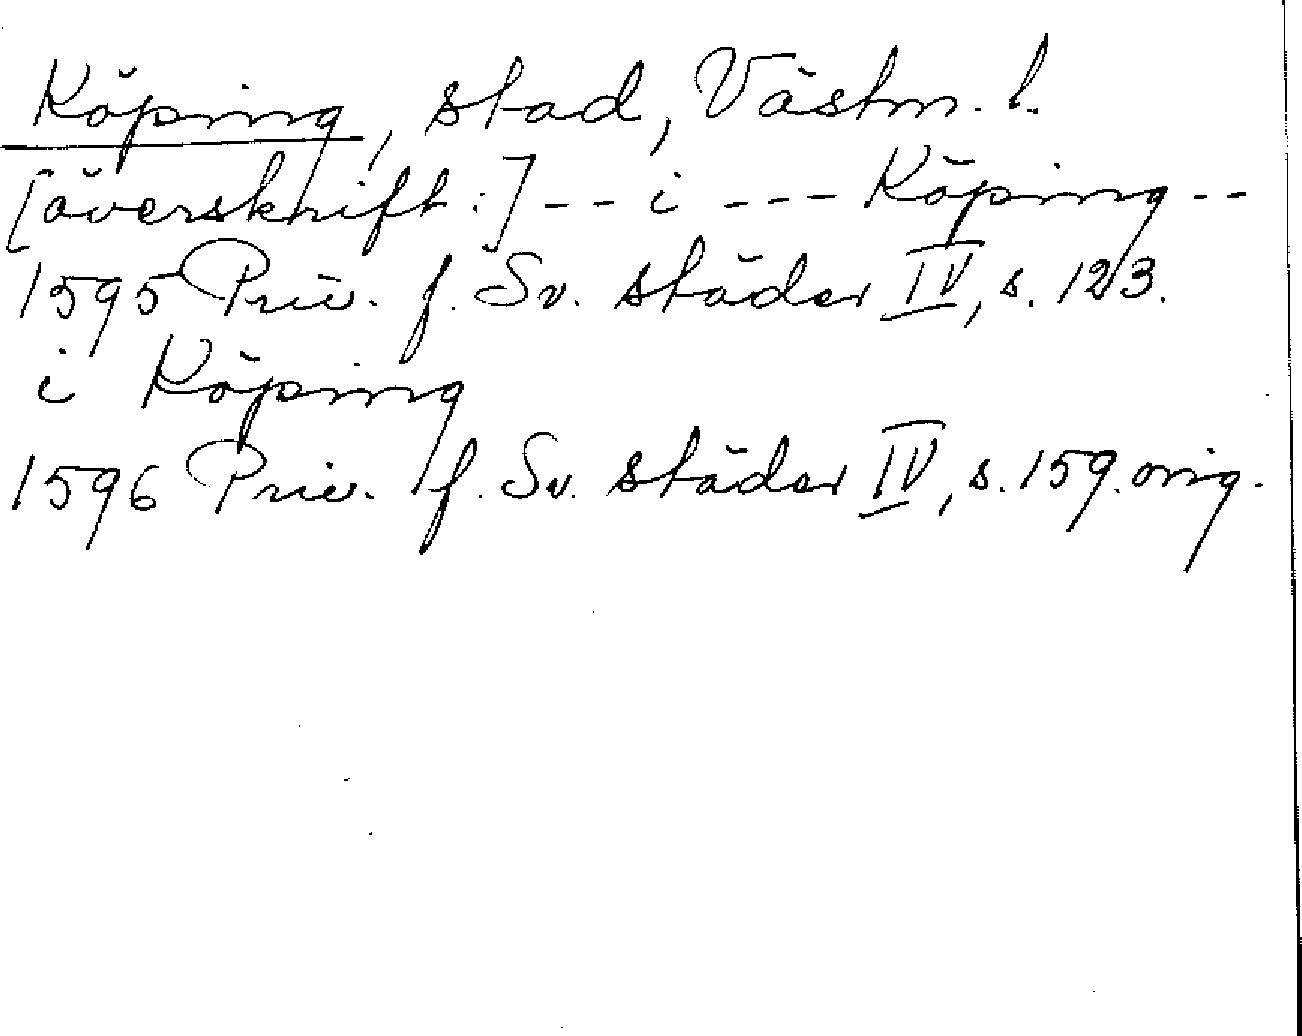 Köping, stad, Västm. l.
[överskrift:] -- i --- Köping --
1595 Priv. f. Sv. städer IV, s. 123.
i Köping
1596 Priv. f. Sv. städer IV, s. 159. orig.